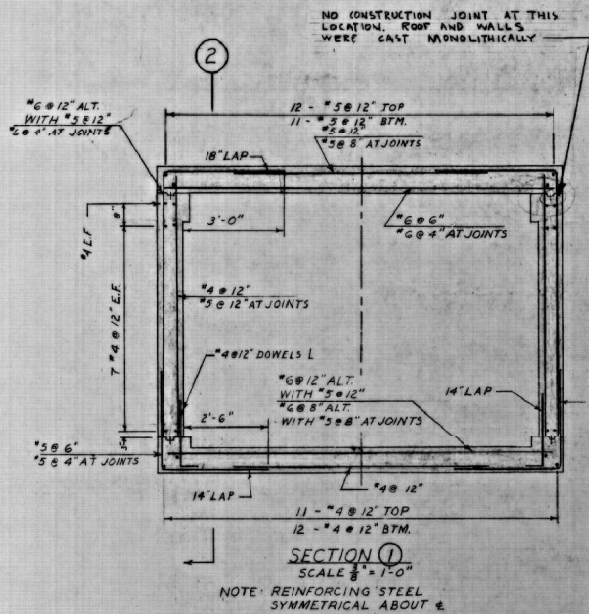 NO CONSTRUCTION JOINT AT THIS
LOCATION. ROOF AND WALLS
WERE CAST MONOLITHICALLY
2
#6 @ 12" ALT.
WITH #5 @ 12"
AT JOINTS
12 - #5 @ 12" TOP
11 - #5 @ 12" BTM.
#5 @ 12"
#5 @ 8" AT JOINTS
18" LAP
8"
3'-0"
#6 @ 6"
#6 @ 4" AT JOINTS
#4 E.F.
#4 @ 12"
#5 @ 12" AT JOINTS
7 #4 @ 12" E.F.
#4 @ 12" DOWELS L
#6 @ 12" ALT.
WITH #5 @ 12"
#6 @ 8" ALT.
WITH #5 @ 8" AT JOINTS
14" LAP
2'-6"
#5 @ 6"
#5 @ 4" AT JOINTS
14" LAP
#4 @ 12"
11 - #4 @ 12" TOP
12 - #4 @ 12" BTM.
SECTION 1
SCALE 3/8" = 1'-0"
NOTE: REINFORCING STEEL
SYMMETRICAL ABOUT ℄